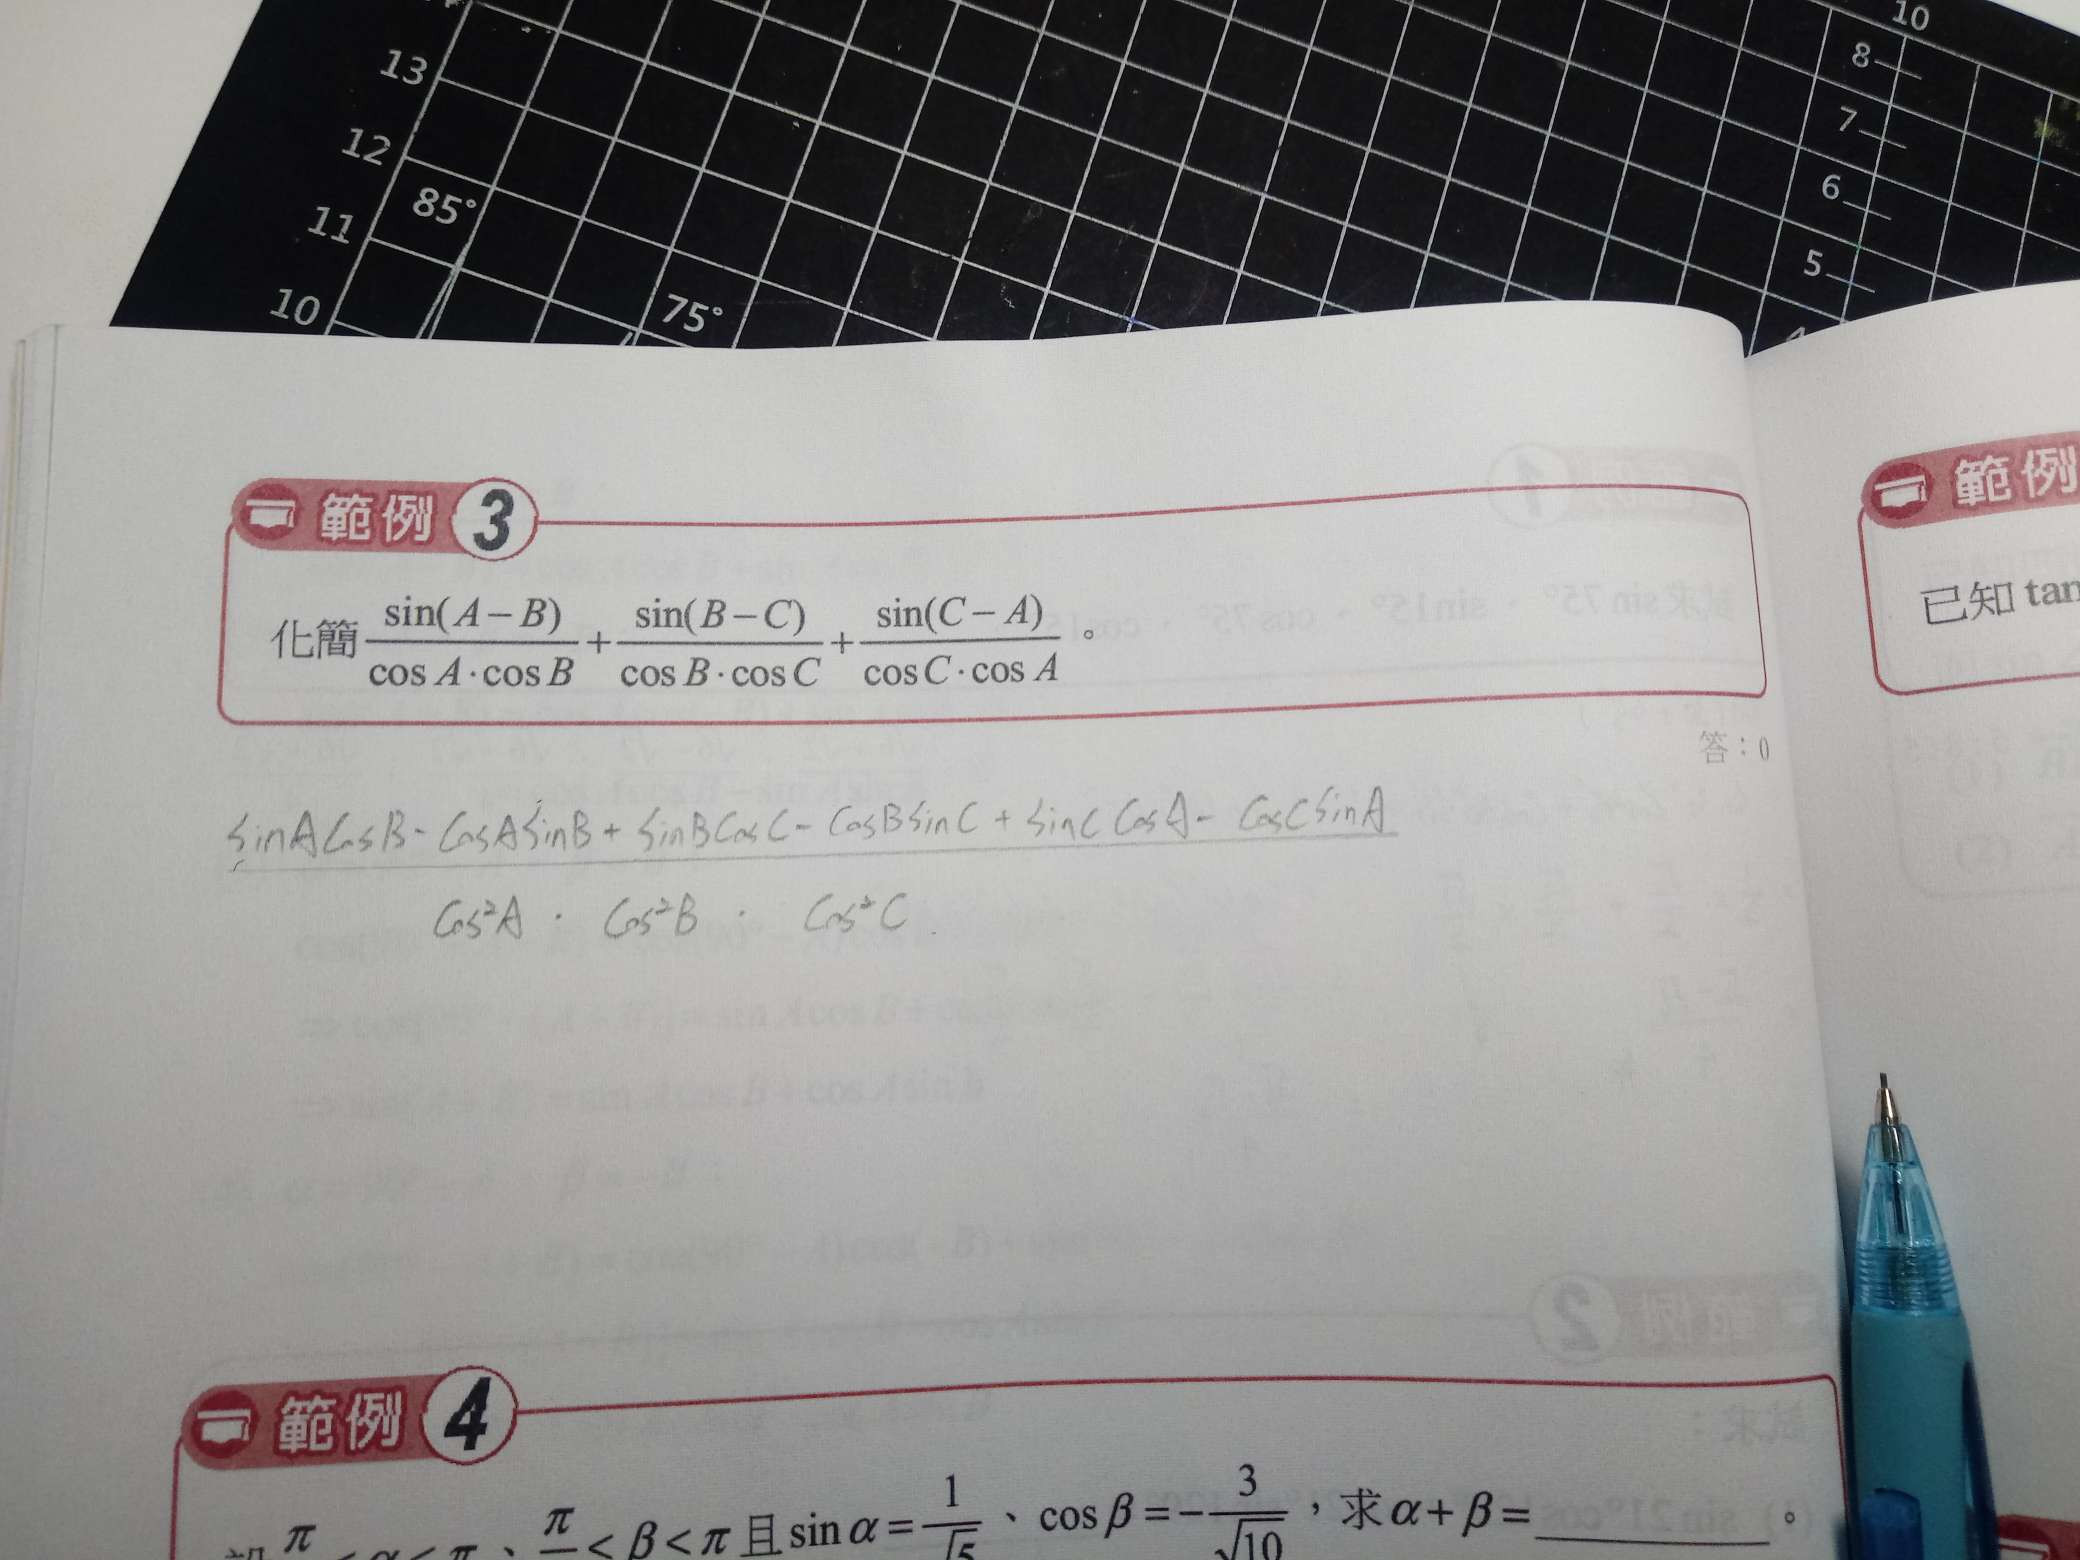 10
8
13
7
12
85°
6
11
5
10
75°
範例 3
範例
化簡 sin(A−B)/(cos A·cos B) + sin(B−C)/(cos B·cos C) + sin(C−A)/(cos C·cos A)。
已知 tan
答：0
sinA cosB − cosA sinB + sinB cosC − cosB sinC + sinC cosA − cosC sinA
cos²A · cos²B · cos²C
範例 4
π/ < β < π 且 sin α = 1/√5、cos β = −3/√10，求 α + β = ________。